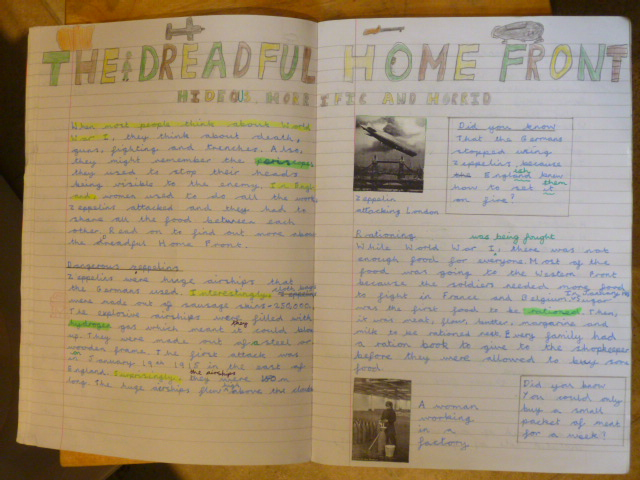 THE DREADFUL HOME FRONT
HIDEOUS, HORRIFIC AND HORRID
When most people think about World
War I, they think about death,
guns, fighting and trenches. Also,
they might remember the periscopes
they used to stop their heads
being visible to the enemy. In Engl
and, women used to do all the work,
Zeppelins attacked and they had to
share all the food between each
other. Read on to find out more about
the dreadful Home Front.
Dangerous zeppelins
Zeppelins were huge airships that
the Germans used. Interestingly,
were made out of sausage skins - 250,000.
The explosive airships were filled with
hydrogen gas which meant it they could blow
up. They were made out of a steel or
wooden frame. The first attack was
on January 19th 1915 in the east of
England. Unsurprisingly, the airships they were
long. The huge airships flew high above the clouds
Zeppelin
attacking London
Did you know
That the Germans
stopped using
zeppelins because
the England knew
how to set it them
on fire?
Rationing
was being fought
While World War I, there was not
enough food for everyone. Most of the
food was going to the Western Front
because the soldiers needed more food
to fight in France and Belgium. Sugar
was the first food to be rationed. Then,
it was meat, flour, butter, margarine and
milk to be rationed next. Every family had
a ration book to give to the shopkeeper
before they were allowed to buy some
food
A woman
working
in a
factory
Did you know
You could only
buy a small
packet of meat
for a week?